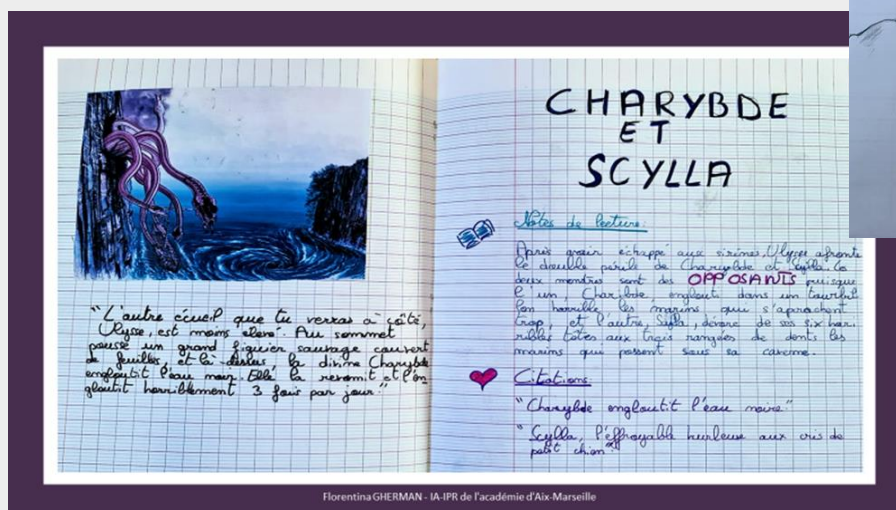 "L'autre écueil que tu verras à côté,
Ulysse, est moins élevé. Au sommet
pousse un grand figuier sauvage couvert
de feuilles, et là-dessus, la divine Charybde
engloutit l'eau noire. Elle la revomit et l'en
gloutit horriblement 3 fois par jour."
CHARYBDE
ET
SCYLLA
Notes de lecture:
Après avoir échappé aux sirènes, Ulysse afronte
le double périls de Charybde et Scylla. Ces
deux monstres sont des OPPOSANTS puisque
l'un, Charybde, englout dans un tourbil
lon horrible les marins qui s'aprochent
trop, et l'autre Sylla, dévore de ses six hor
ribles têtes aux trois rangées de dents les
marins qui passent sous sa caverne.
Citations:
"Charybde engloutit l'eau noire"
"Scylla, l'effroyable hurleuse aux cris de
petit chien"
Florentina GHERMAN - IA-IPR de l'académie d'Aix-Marseille